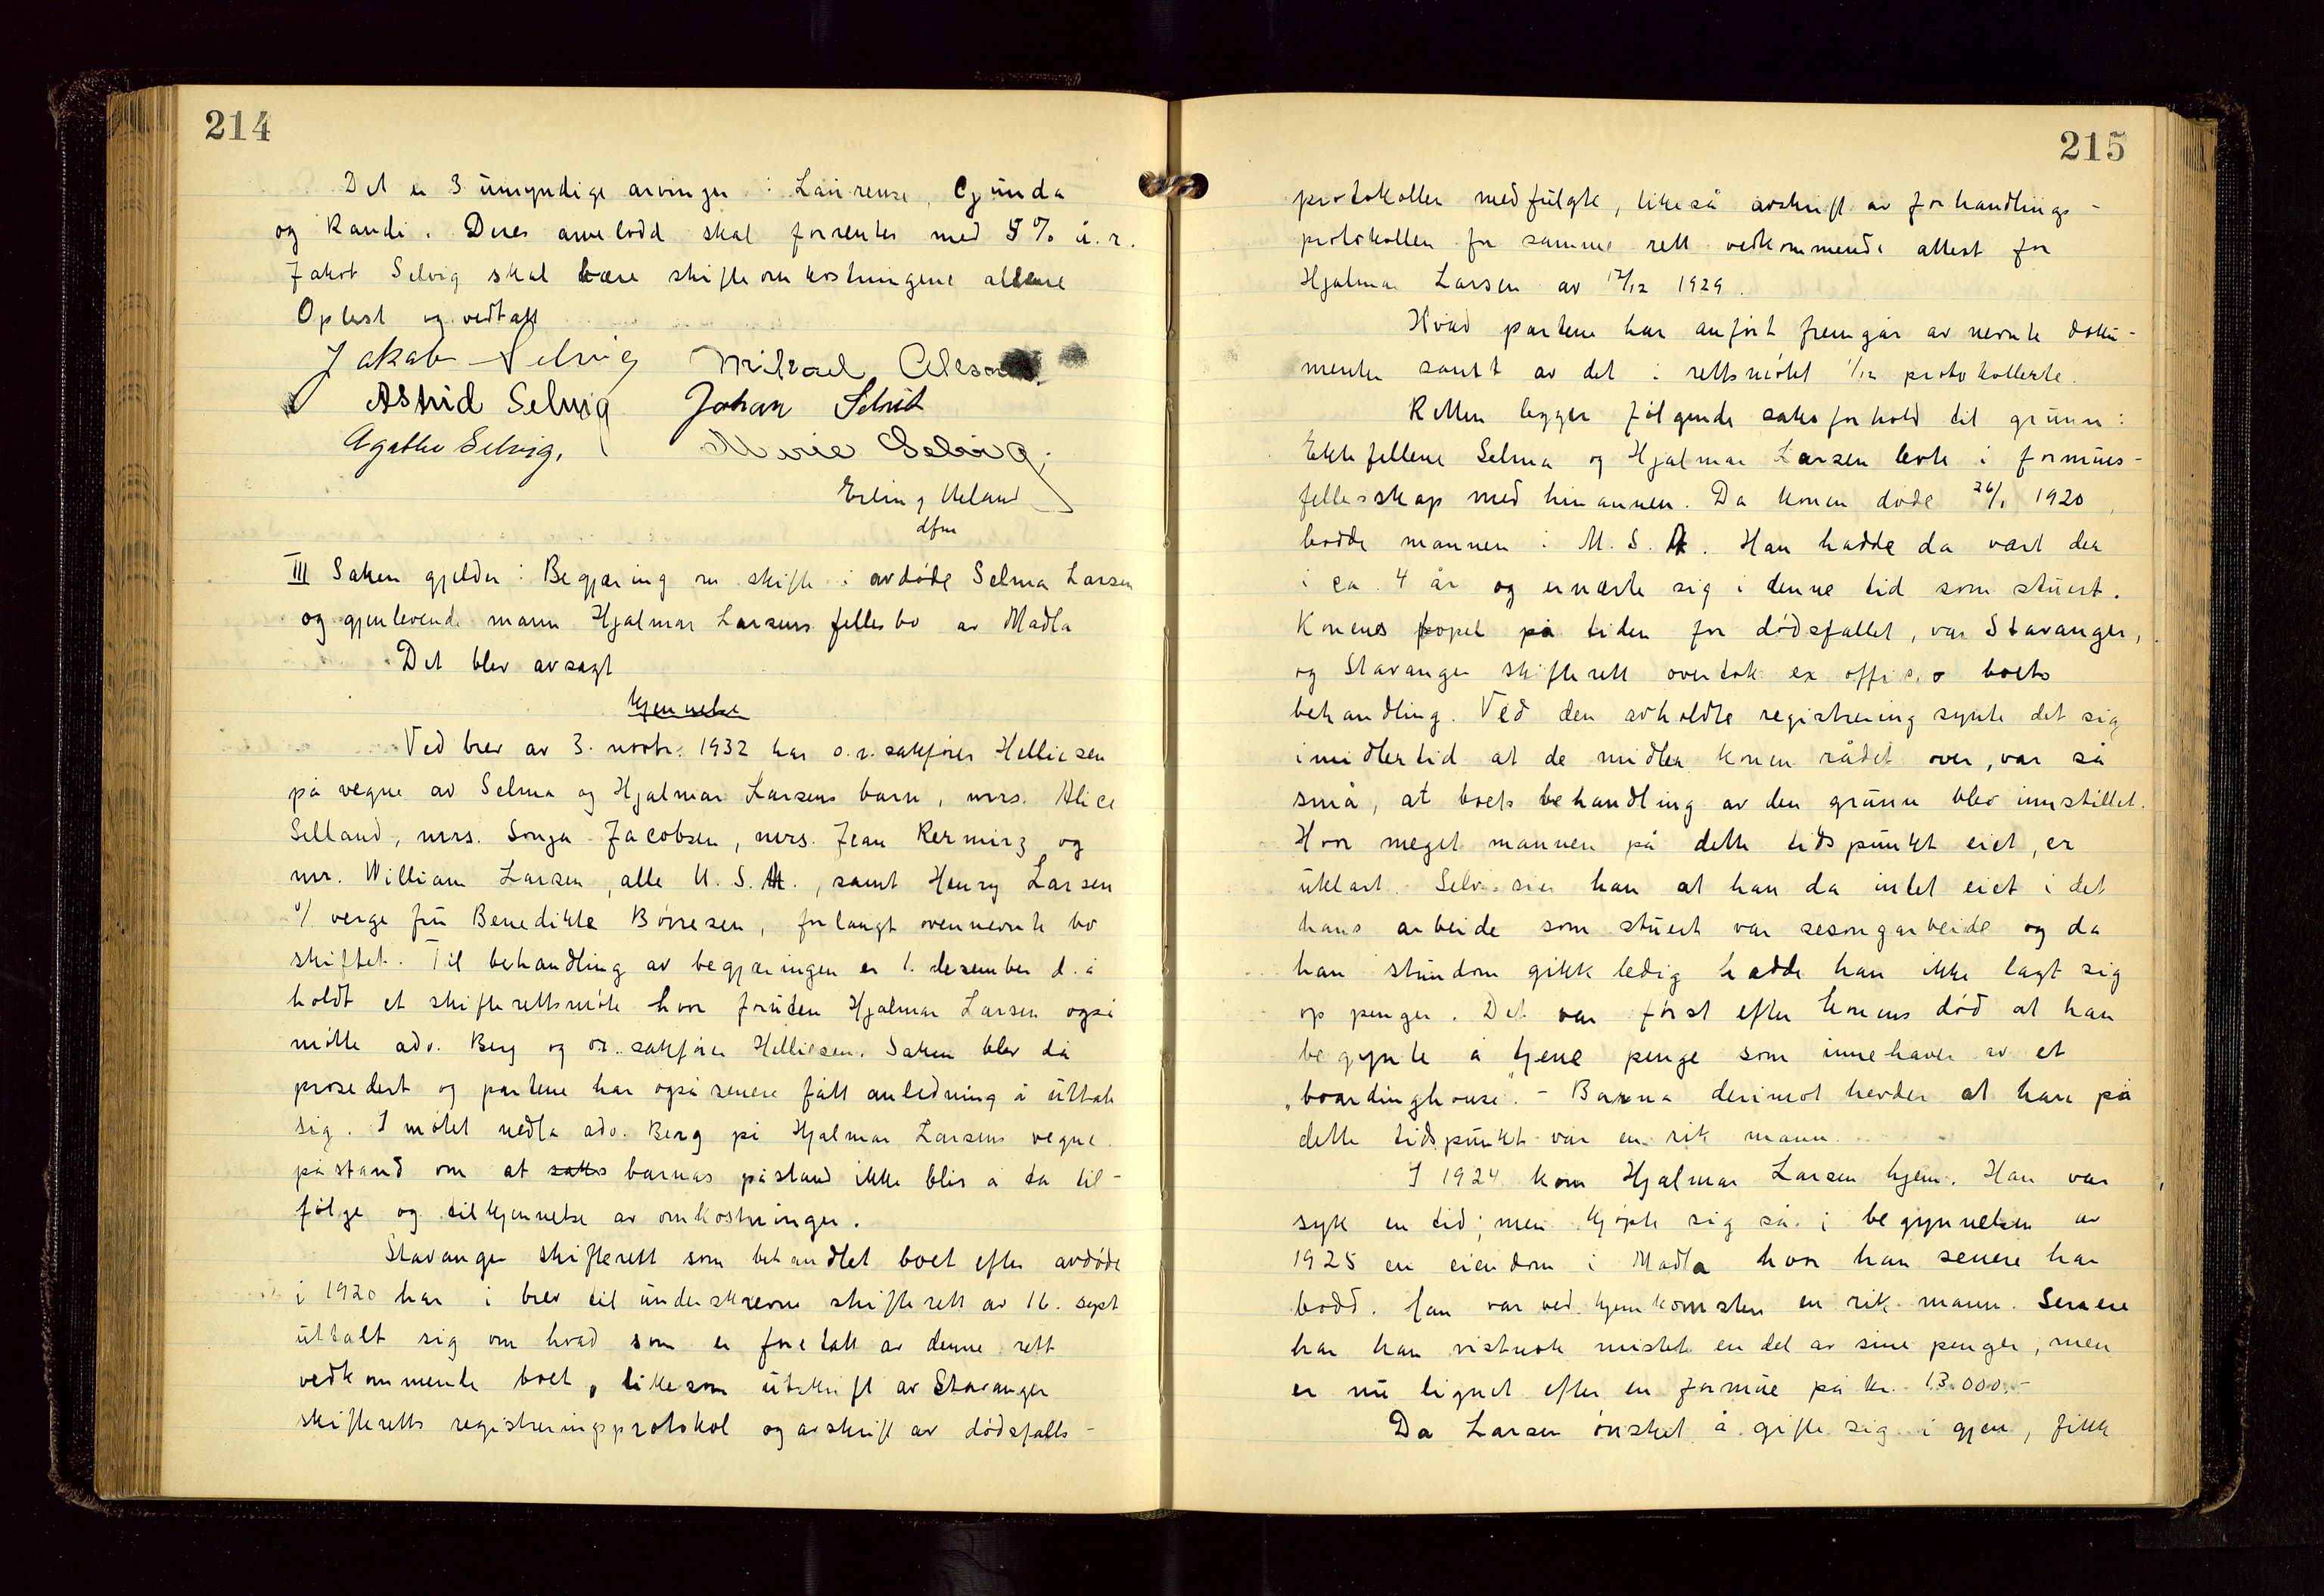 214
Det er 3 umyndige arvinger : Laurense, Gunda
og Randi. Deres arvelodd skal forrentes med 5 % å.r.
Jakob Selvig skal bære skifteomkostningene allene
Oplest og vedtatt
Jakab Selvig Mikael
Astrid Selvig Johan
Agathe Selvig, Marie Selvig,
Erling Ueland
dfm
III Saken gjelder : Begjæring om skifte i avdøde Selma Larsen
og gjenlevende mann Hjalmar Larsens fellesbo av Madla
Det blev avsagt
kjennelse
Ved brev av 3. novbr. 1932 har o.r.sakfører Helliesen
på vegne av Selma og Hjalmar Larsens barn, mrs. Alice
Selland, mrs. Sonja Jacobsen, mrs. Jean Rermirz og
mr. William Larsen, alle U.S.A., samt Henry Larsen
v/ verge fru Benedikte Børresen, forlangt ovennevnte bo
skiftet. Til behandling av begjæringen er 1. desember d.å
holdt et skifterettsmøte hvor foruten Hjalmar Larsen også
møtte adv. Berg og or.sakfører Helliesen. Saken blev da
prosedert og partene har også senere fått anledning å uttale
sig. I møtet nedla adv. Berg på Hjalmar Larsens vegne
påstand om at saks barnas påstand ikke blir å ta til-
følge og tilkjennelse av omkostninger.
Stavanger skifterett som behandlet boet efter avdøde
i 1920 har i brev til underskrevne skifterett av 16. sept
uttalt sig om hvad som er foretatt av denne rett
vedkommende boet, likesom utskrift av Stavanger
skifteretts registreringsprotokol og avskrift av dødsfalls-
215
protokollen medfulgte, likeså avskrift av forhandlings-
protokollen for samme rett vedkommende attest for
Hjalmar Larsen av 17/12 1929.
Hvad partene har anført fremgår av nevnte doku-
menter samt av det i rettsmøtet 1/12 protokollerte.
Retten legger følgende saksforhold til grunn :
Ektefellene Selma og Hjalmar Larsen levte i formues-
fellesskap med hinannen. Da konen døde 26/1 1920,
bodde mannen i U.S.A. Han hadde da vært der
i ca. 4 år og ernærte sig i denne tid som stuert.
Konens bopel på tiden for dødsfallet, var Stavanger,
og Stavanger skifterett overtok ex officio boets
behandling. Ved den avholdte registrering synte det sig
imidlertid at de midler konen rådet over, var så
små, at boets behandling av den grunn blev innstillet.
Hvor meget mannen på dette tidspunkt eiet, er
uklart. Selv sier han at han da intet eiet i det
hans arbeide som stuert var sesongarbeide og da
han stundom gikk ledig hadde han ikke lagt sig
op penger. Det var først efter konens død at han
begynte å tjene penge som innehaver av et
„boardinghouse". - Barna derimot hevder at han på
dette tidspunkt var en rik mann.
I 1924 kom Hjalmar Larsen hjem. Han var
syk en tid; men kjøpte sig så i begynnelsen av
1925 en eiendom i Madla hvor han senere har
bodd. Han var ved hjemkomsten en rik mann. Senere
har han visstnok mistet en del av sine penger, men
er nu lignet efter en formue på kr. 13.000.-
Da Larsen ønsket å gifte sig i gjen, fikk